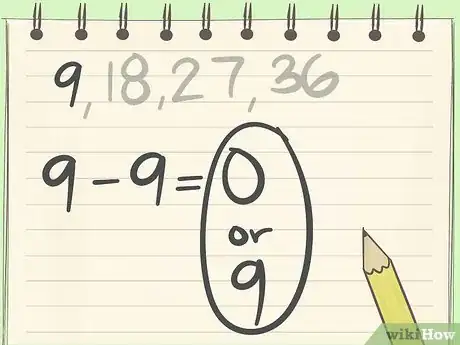 9, 18, 27, 36
9 - 9 = 0
or
9
wikiHow